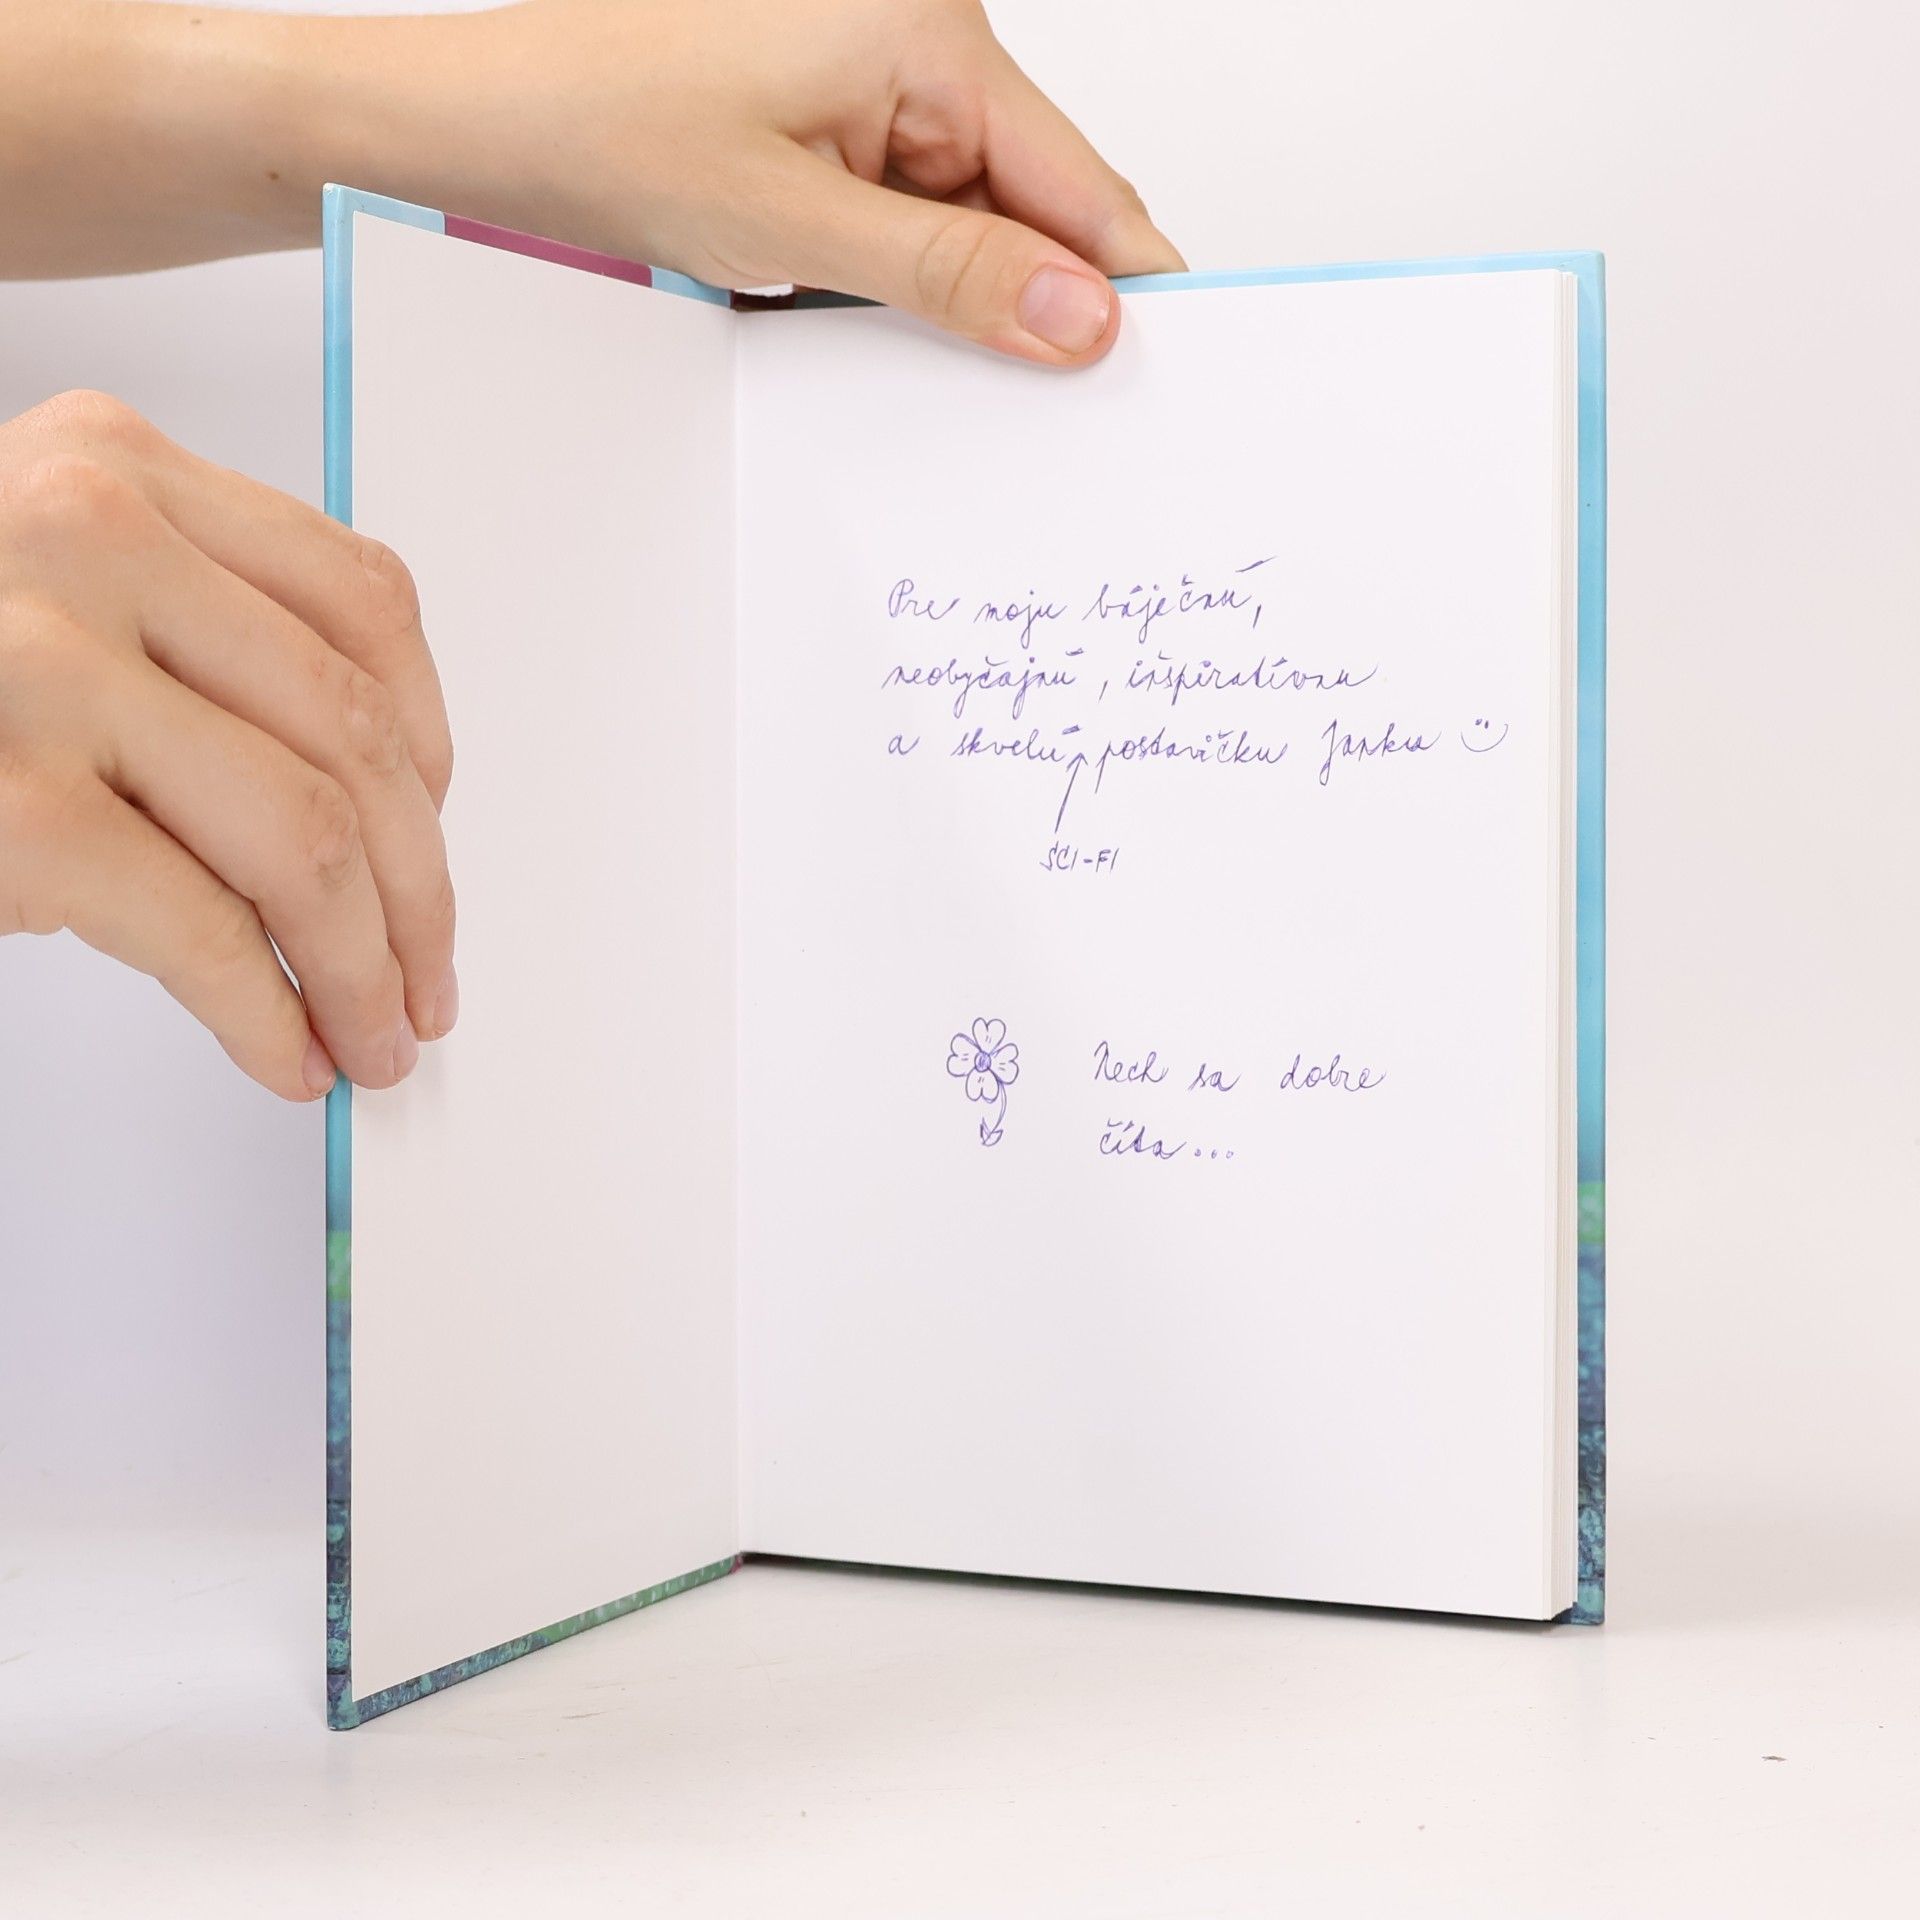 Pre moju báječnú,
neobyčajnú, inšpiratívnu
a skvelú postavičku Janka
SCI-FI
Nech sa dobre
číta...